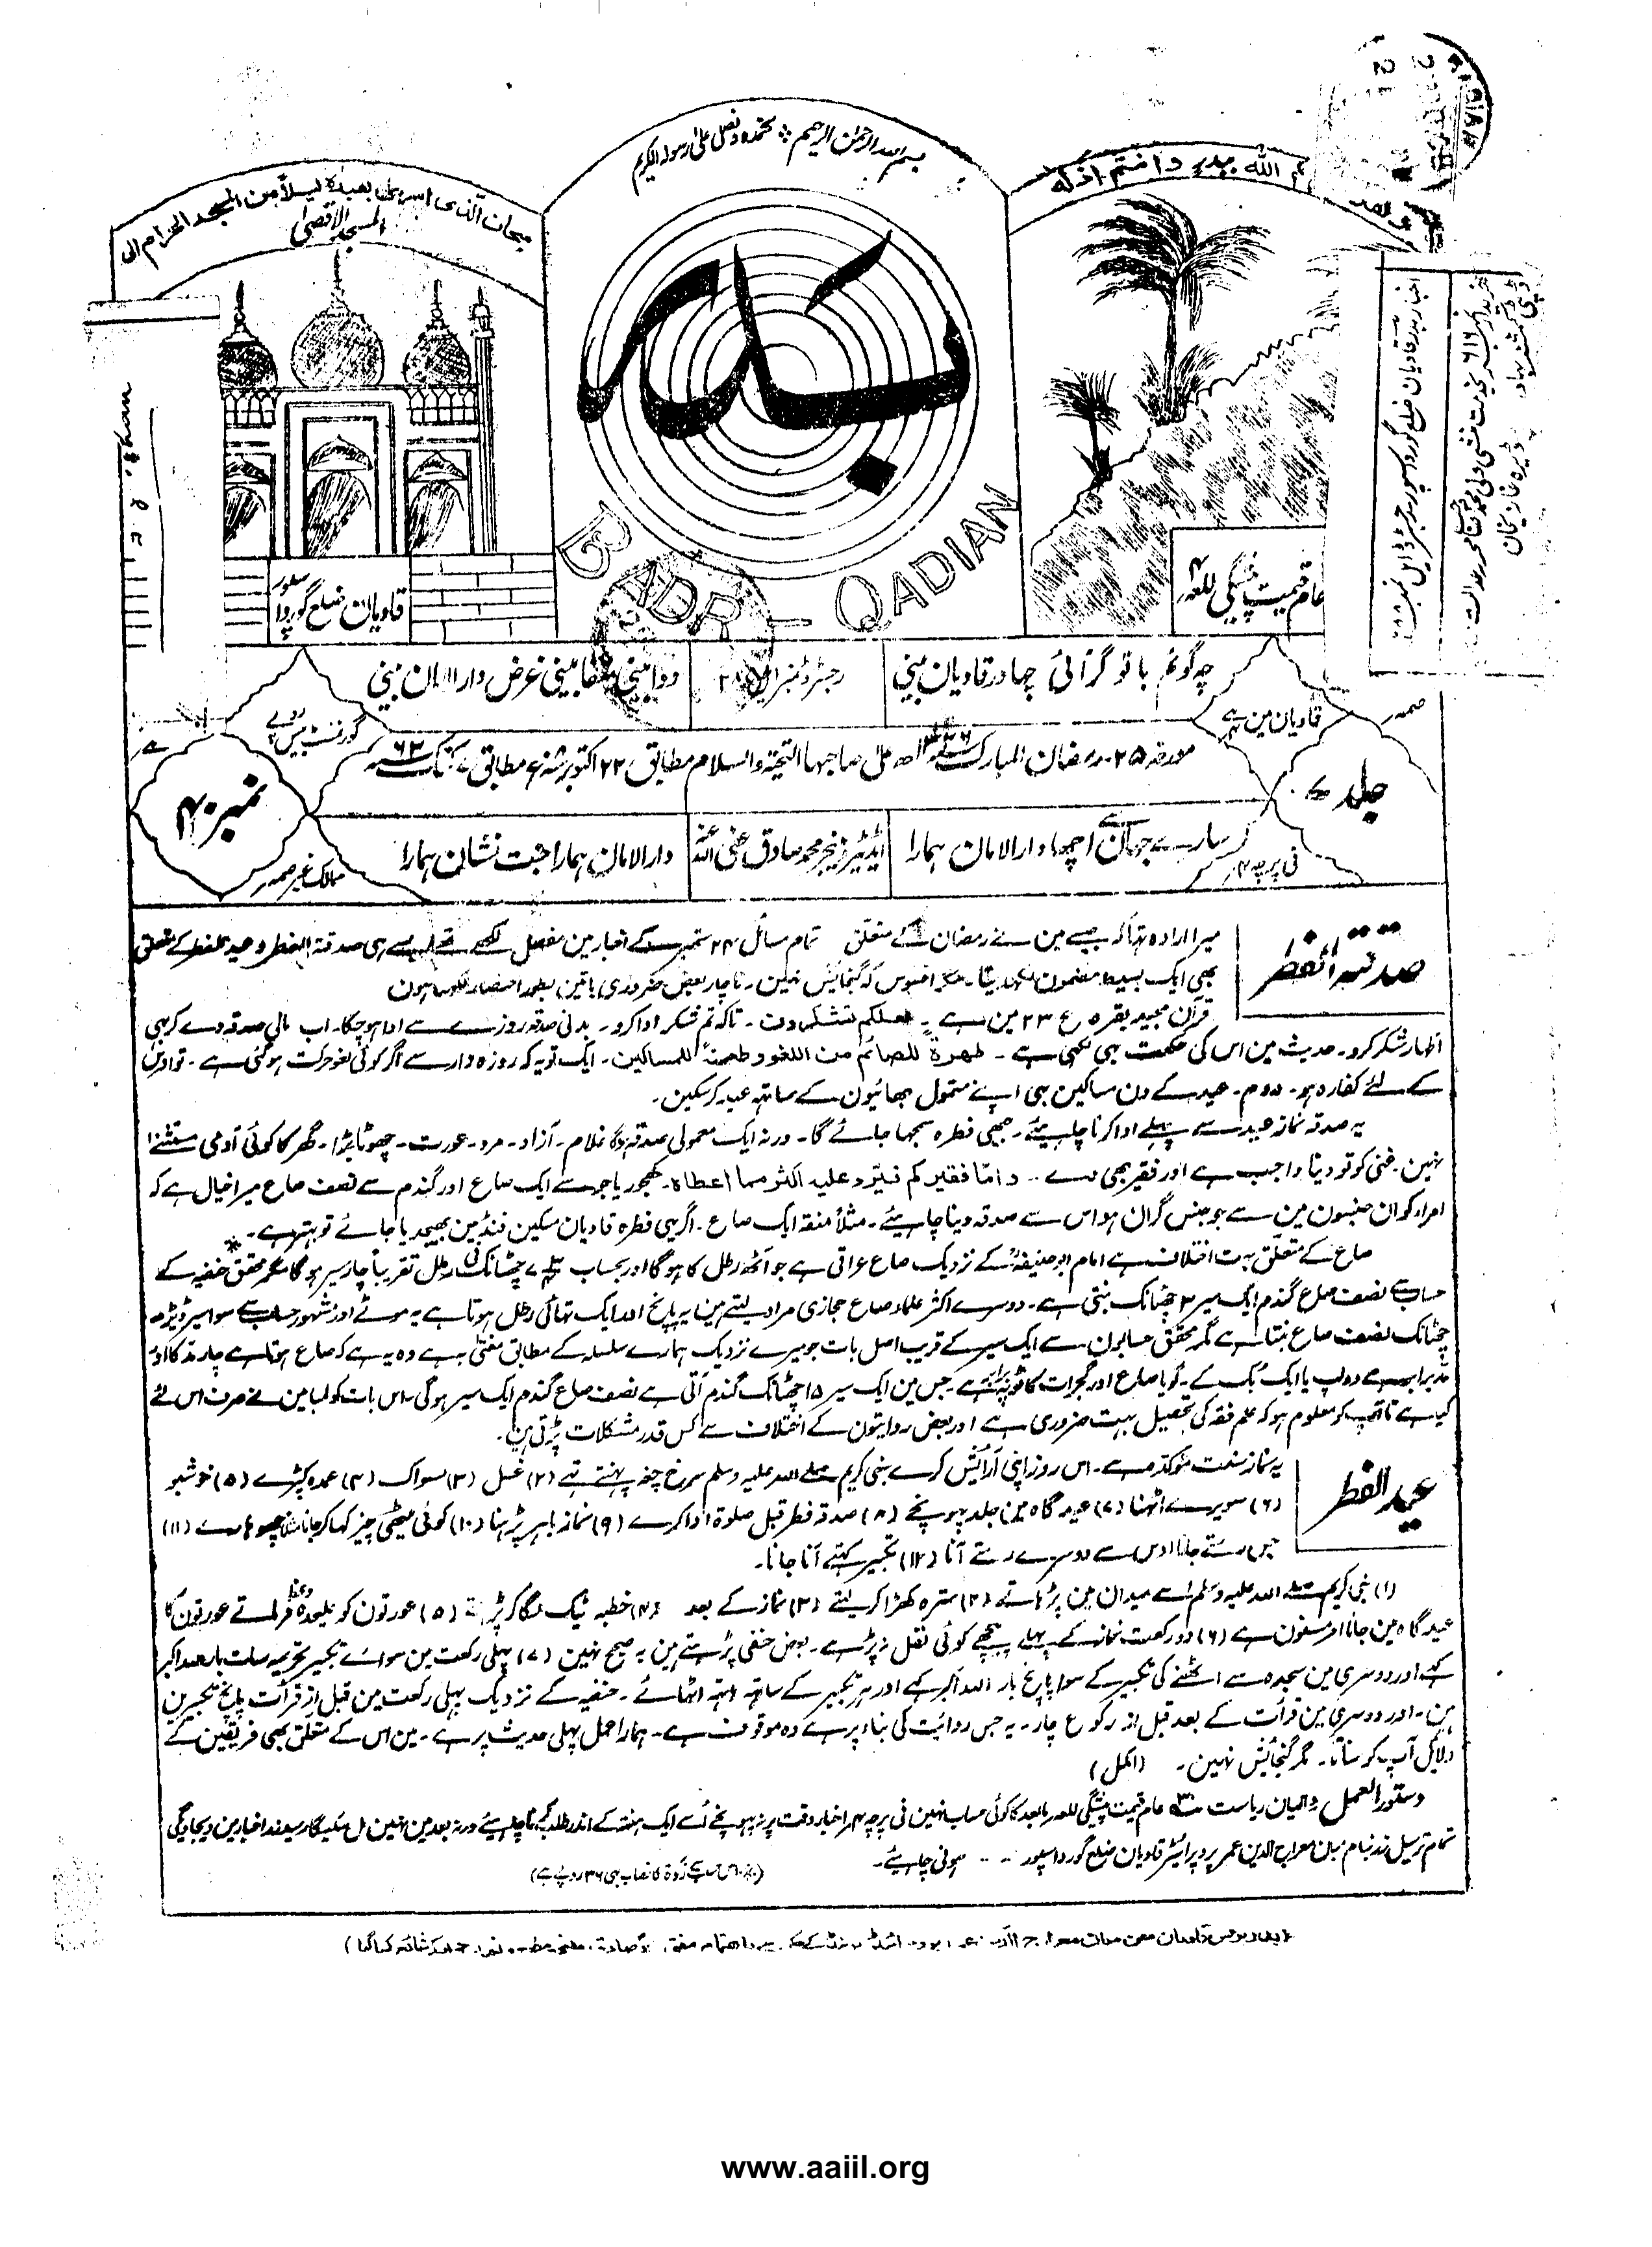 بسم اللہ الرحمٰن الرحیم ؞ نحمدہ و نصلی علیٰ رسولہ الکریم
اللہ ببدر و انتم اذلہ
سبحان الذی اسریٰ بعبدہ لیلاً من المسجد الحرام الی
المسجد الاقصیٰ
بدر
BADR – QADIAN
قادیان ضلع گورداسپور
عام قیمت پیشگی للعہ
اخبار بدر قادیان ضلع گورداسپور رجسٹرڈ ایل نمبر ۲۸۸
ڈیرہ غازیخان
چہ گویم با تو گر آئی چہا در قادیان بینی
رجسٹرڈ نمبر ایل
دوا بینی شفا بینی غرض دار الامان بینی
قادیان میں ہے
مورخہ ۲۵ رمضان المبارک علیٰ صاحبہا التحیۃ والسلام مطابق ۲۲ اکتوبر مطابق
جلد ۷
نمبر ۴۰
سارے جہان سے اچھا دار الامان ہمارا
ایڈیٹر و منیجر محمد صادق عفی اللہ عنہ
دار الامان ہمارا جنت نشان ہمارا
فی پرچہ ۲
ممالک غیر
صدقۃ الفطر
میرا ارادہ تہا کہ جیسے مین نے رمضان کے متعلق تمام مسائل ۲۴ ستمبر کے اخبار مین مفصل لکھے تھے ایسے ہی صدقۃ الفطر و عید الفطر کے متعلق
بھی ایک بسیط مضمون لکھ دیتا۔ مگر افسوس کہ گنجائیش نہین۔ ناچار بعض ضروری باتین بطور اختصار لکھتا ہون
قرآن مجید بقرہ ع ۲۳ مین ہے۔ لعلکم تشکرون۔ تاکہ تم شکر ادا کرو۔ بدنی صدقہ روزے سے ادا ہو چکا۔ اب مالی صدقہ دے کر ہی
اظہار شکر کرو۔ حدیث مین اس کی حکمت یہی لکھی ہے۔ طہرۃ للصائم من اللغو و طعمۃ للمساکین۔ ایک تو یہ کہ روزہ دار سے اگر کوئی لغو حرکت ہو گئی ہے۔ تو اوس
کے لئے کفارہ ہو۔ دوم۔ عید کے دن مساکین بھی اپنے متمول بھائیون کے ساتھ عید کر سکین۔
یہ صدقہ نماز عید سے پہلے ادا کرنا چاہیئے۔ جبھی فطرہ سمجھا جائے گا۔ ورنہ ایک معمولی صدقہ ہوگا غلام۔ آزاد۔ مرد۔ عورت۔ چھوٹا بڑا۔ گھر کا کوئی آدمی مستثنےٰ
نہین۔ غنی کو تو دینا واجب ہے اور فقیر بھی دے۔ و امّا فقیرکم فیردّ علیہ اکثر مما اعطاہ۔ کھجور یا جو سے ایک صاع اور گندم سے نصف صاع میرا خیال ہے کہ
امراء کو ان جنسون مین سے جو جنس گران ہو اس سے صدقہ دینا چاہیئے۔ مثلاً منقہ ایک صاع۔ اگر یہی فطرہ قادیان مسکین فنڈ مین بھیجد یا جائے تو بہتر ہے۔
صاع کے متعلق بہت اختلاف ہے امام ابو حنیفہؒ کے نزدیک صاع عراقی ہے جو آٹھ رطل کا ہوگا اور بحساب ۷ چھٹانک فی رطل تقریباً چار سیر ہوگا مگر محقق حنفیہ کے
حساب سے نصف صاع گندم ایک سیر ۳ چھٹانک بنتی ہے۔ دوسرے اکثر علماء صاع حجازی مراد لیتے مین یہ پانچ اور ایک تہائی رطل ہوتا ہے یہ موٹے اور مشہور حساب سے سوا سیر ڈیڑھ
چھٹانک نصف صاع بنتا ہے مگر محقق حسابون سے ایک سیر کے قریب اصل بات جو میرے نزدیک ہمارے سلسلہ کے مطابق مفتیٰ بہ ہے وہ یہ ہے کہ صاع ہوتا ہے چار مد کا اور
مد برابر ہے دو لپ یا ایک بک کے۔ گویا صاع اور گجرات کا ٹوپہ برابر ہے۔ جس مین ایک سیر ۱۵ چھٹانک گندم آتی ہے نصف صاع گندم ایک سیر ہوگی۔ اس بات کو لمبا مین نے صرف اس لئے
کیا ہے تا آپ کو معلوم ہو کہ علم فقہ کی تحصیل بہت ضروری ہے اور بعض روایتون کے اختلاف سے کس قدر مشکلات پڑتی ہین۔
عید الفطر
یہ نماز سنت مؤکدہ ہے۔ اس روز اپنی آرائیش کرے نبی کریم صلے اللہ علیہ وسلم سرخ چغہ پہنتے تہے (۲) غسل (۳) مسواک (۴) عمدہ کپڑے (۵) خوشبو
(۶) سویرے اٹھنا (۷) عیدگاہ مین جلد پہونچے (۸) صدقہ فطر قبل صلوۃ ادا کرے (۹) نماز باہر پڑہنا (۱۰) کوئی میٹھی چیز کہا کر جانا مثلاً چھوہارے (۱۱)
جس رستے جانا اوس سے دوسرے رستے آنا (۱۲) تکبیر کہتے آنا جانا۔
(۱) نبی کریم صلے اللہ علیہ وسلم اسے میدان مین پڑہاتے (۲) سترہ کھڑا کر لیتے (۳) نماز کے بعد (۴) خطبہ ٹیک لگا کر پڑہتے (۵) عورتون کو علیحدہ وعظ فرماتے عورتون کا
عیدگاہ مین جانا امر مسنون ہے (۶) دو رکعت نماز کے پہلے پیچھے کوئی نفل نہ پڑہے۔ بعض حنفی پڑہتے ہین یہ صحیح نہین (۷) پہلی رکعت مین سوائے تکبیر تحریمہ سات بار اللہ اکبر
کہے اور دوسری مین سجدہ سے اٹھنے کی تکبیر کے سوا پانچ بار اللہ اکبر کہے اور ہر تکبیر کے ساتھ ہاتھ اٹھائے۔ حنفیہ کے نزدیک پہلی رکعت مین قبل از قرأت پانچ تکبیرین
ہین۔ اور دوسری مین قرأت کے بعد قبل از رکوع چار۔ یہ جس روائیت کی بناء پر ہے وہ موقوف ہے۔ ہمارا عمل پہلی حدیث پر ہے۔ مین اس کے متعلق بھی فریقین کے
دلائل آپ کو سناتا۔ مگر گنجائیش نہین۔ (اکمل)
دستور العمل والیان ریاست عام قیمت پیشگی للعہ مابعد کا کوئی حساب نہین فی پرچہ اخبار وقت پر نہ پہونچے اُسے ایک ہفتہ کے اندر طلب کرنا چاہیئے ورنہ بعد مین نہین مل سکیگا رسید زر اخبار مین دیجاویگی
تمام ترسیل زر بنام میان معراج الدین عمر پروپرائیٹر قادیان ضلع گورداسپور ۔۔ ۔۔ ہونی چاہیئے۔
www.aaiil.org